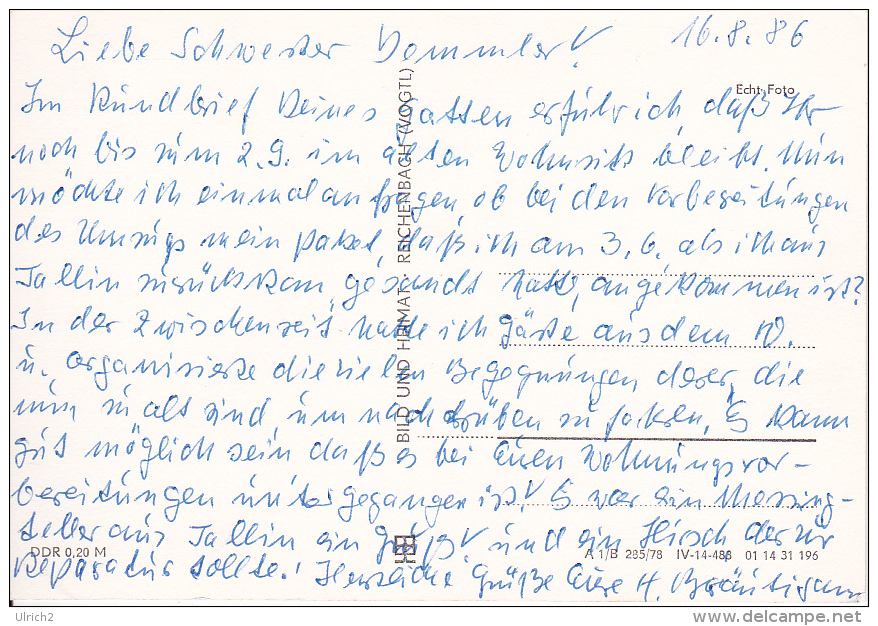 16.8.86
Liebe Schwester Dommler!
Echt Foto
Im Rundbrief Deines Gatten erfuhr ich, daß Ihr
noch bis zum 2.9. im alten Wohnsitz bleibt. Nun
möchte ich einmal anfragen, ob bei den Vorbereitungen
des Umzugs mein Paket, daß ich am 3.6. als ich aus
Tallin zurückkam, gesandt hatte, angekommen ist?
In der Zwischenzeit hatte ich Gäste aus dem W.
u. organisierte die vielen Begegnungen derer, die
nun zu alt sind, um nach drüben zu fahren. Es kann
gut möglich sein daß es bei Euren Wohnungsvor-
bereitungen untergegangen ist! Es war ein Messing-
teller aus Tallin ein Gruß! und ein Hirsch der zur
Reparatur sollte! Herzliche Grüße Eure H. Bräutigam
BILD UND HEIMAT · REICHENBACH (VOGTL)
DDR 0,20 M
A 1/B 285/78 IV-14-483 01 14 31 196
Ulrich2
delcampe.net